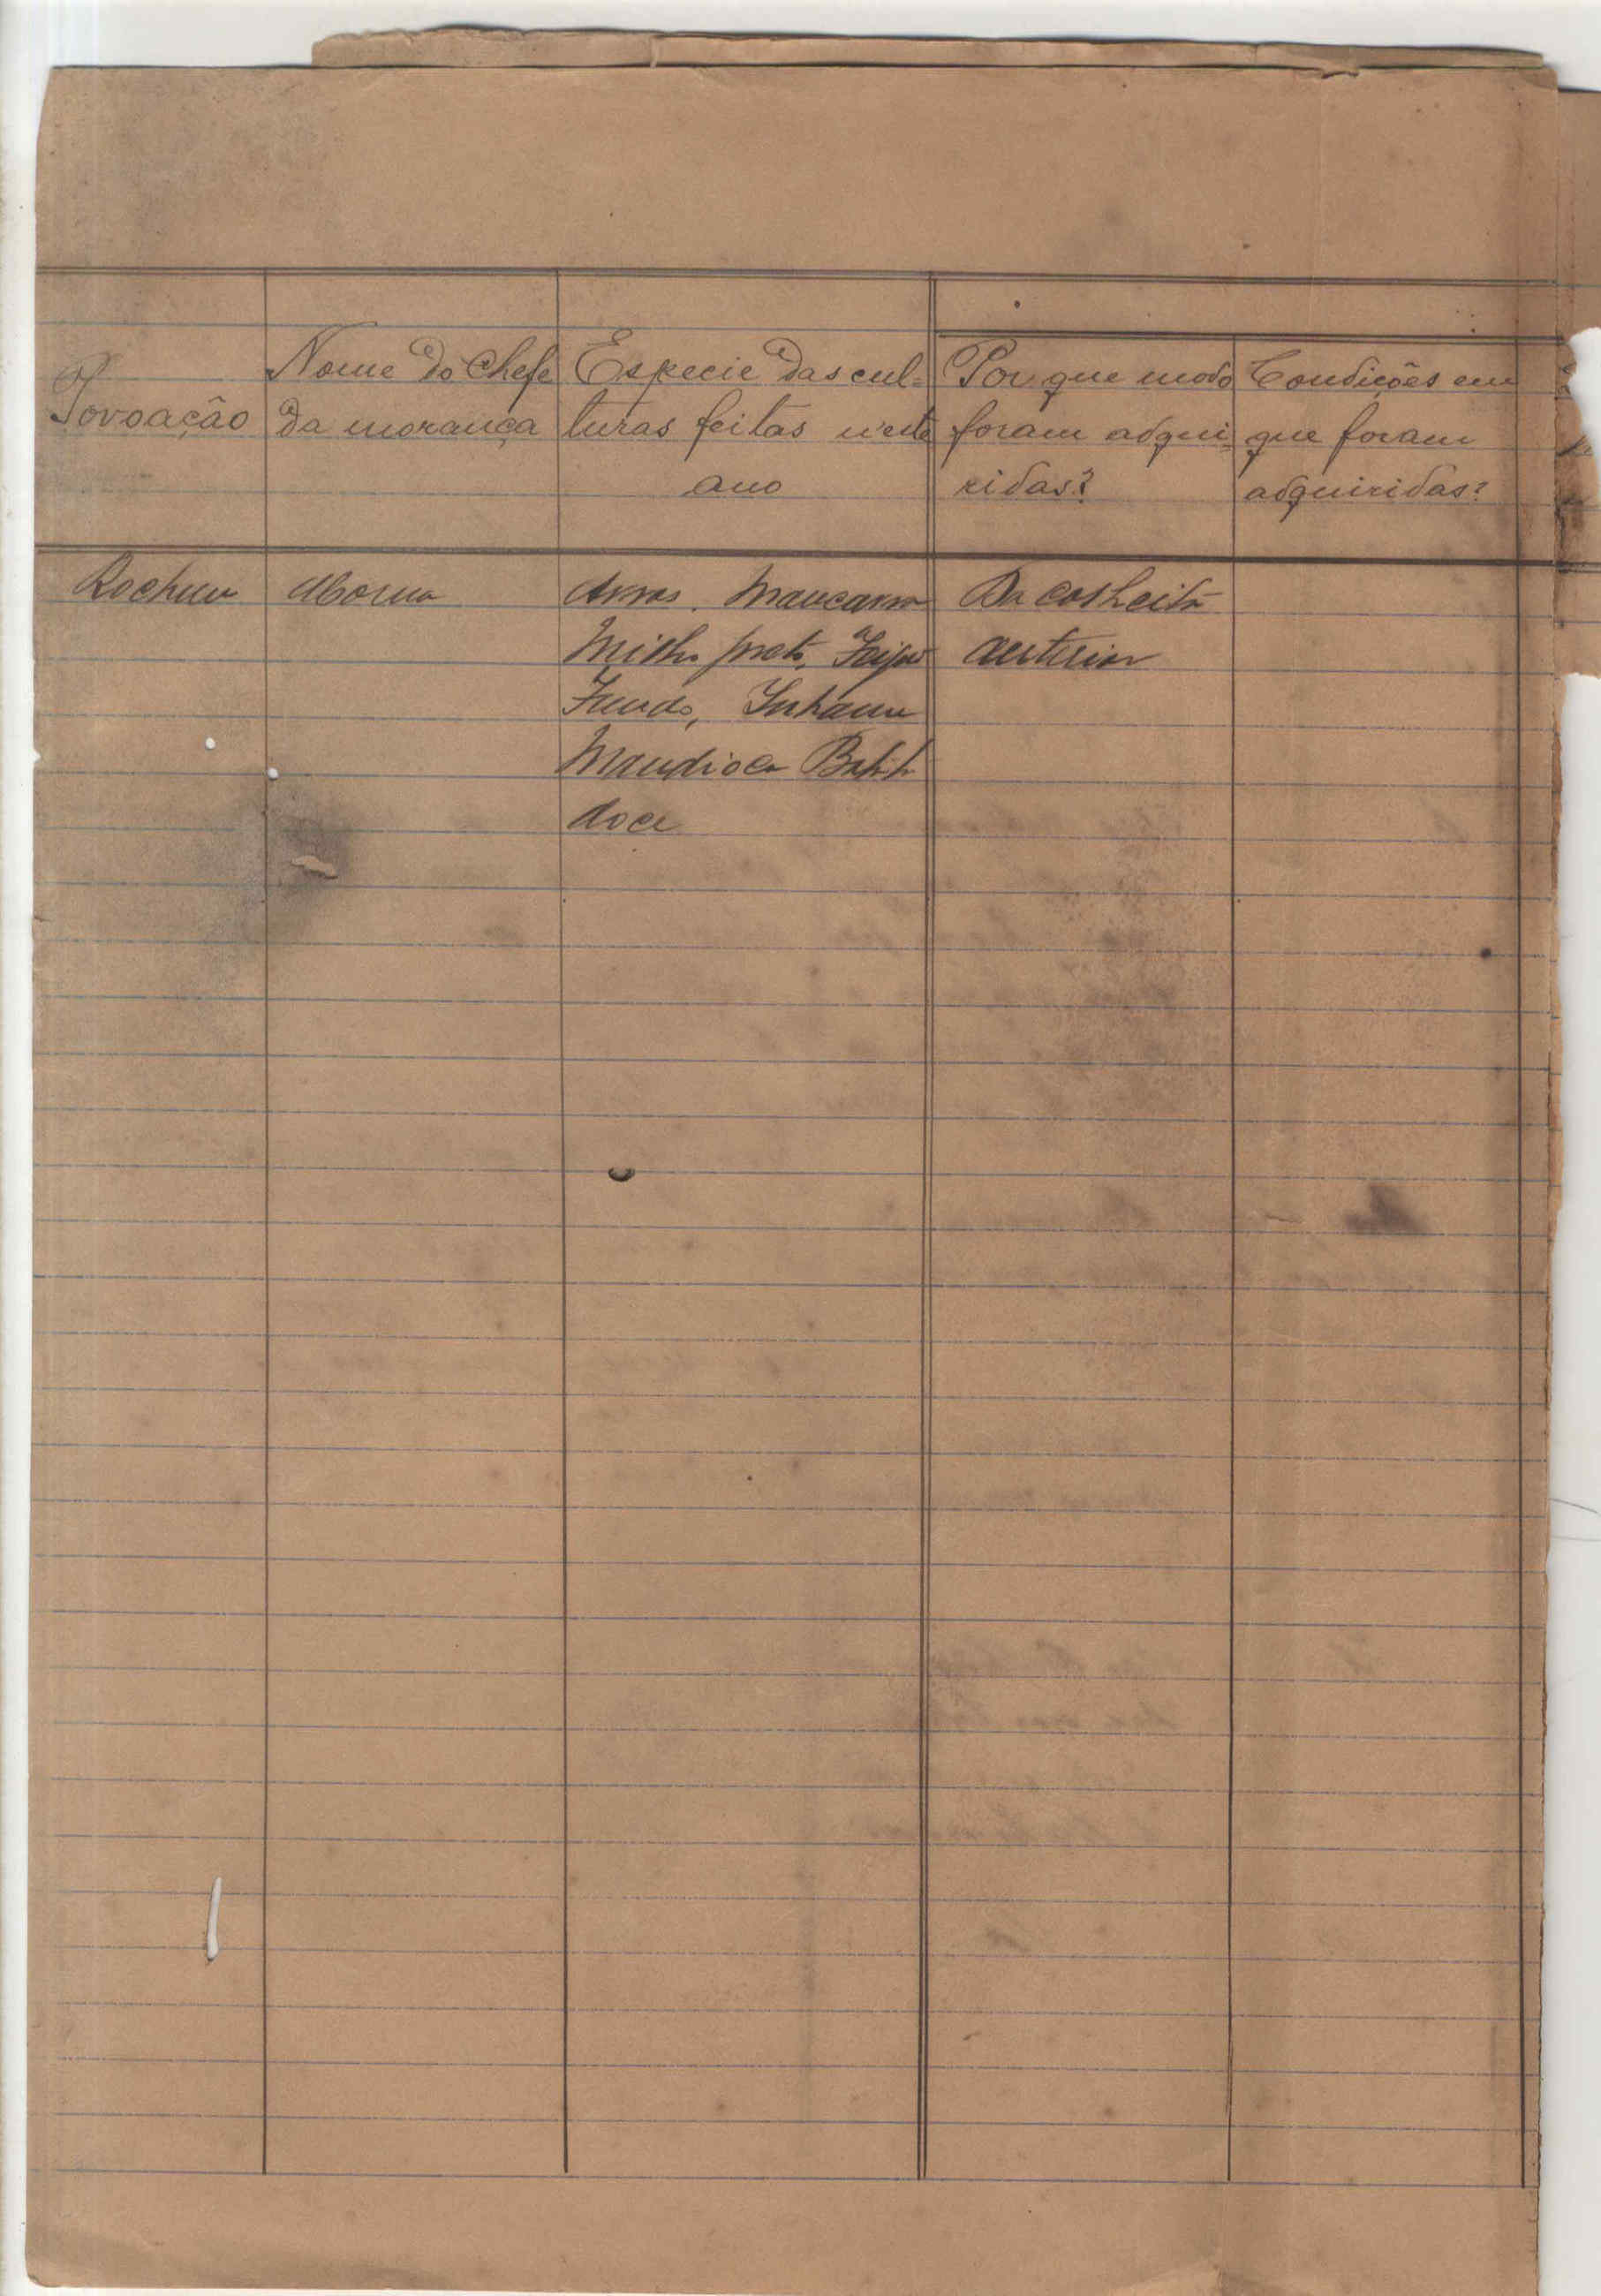 Povoação
Nome do Chefe
da morança
Especie das cul-
turas feitas n'este
ano
Por que modo
foram adqui-
ridas?
Condições em
que foram
adquiridas?
Arros. Mancarra
Milho preto, Feijão
Fundo, Inhame
Mandioca Batata
doce
Da colheita
anterior